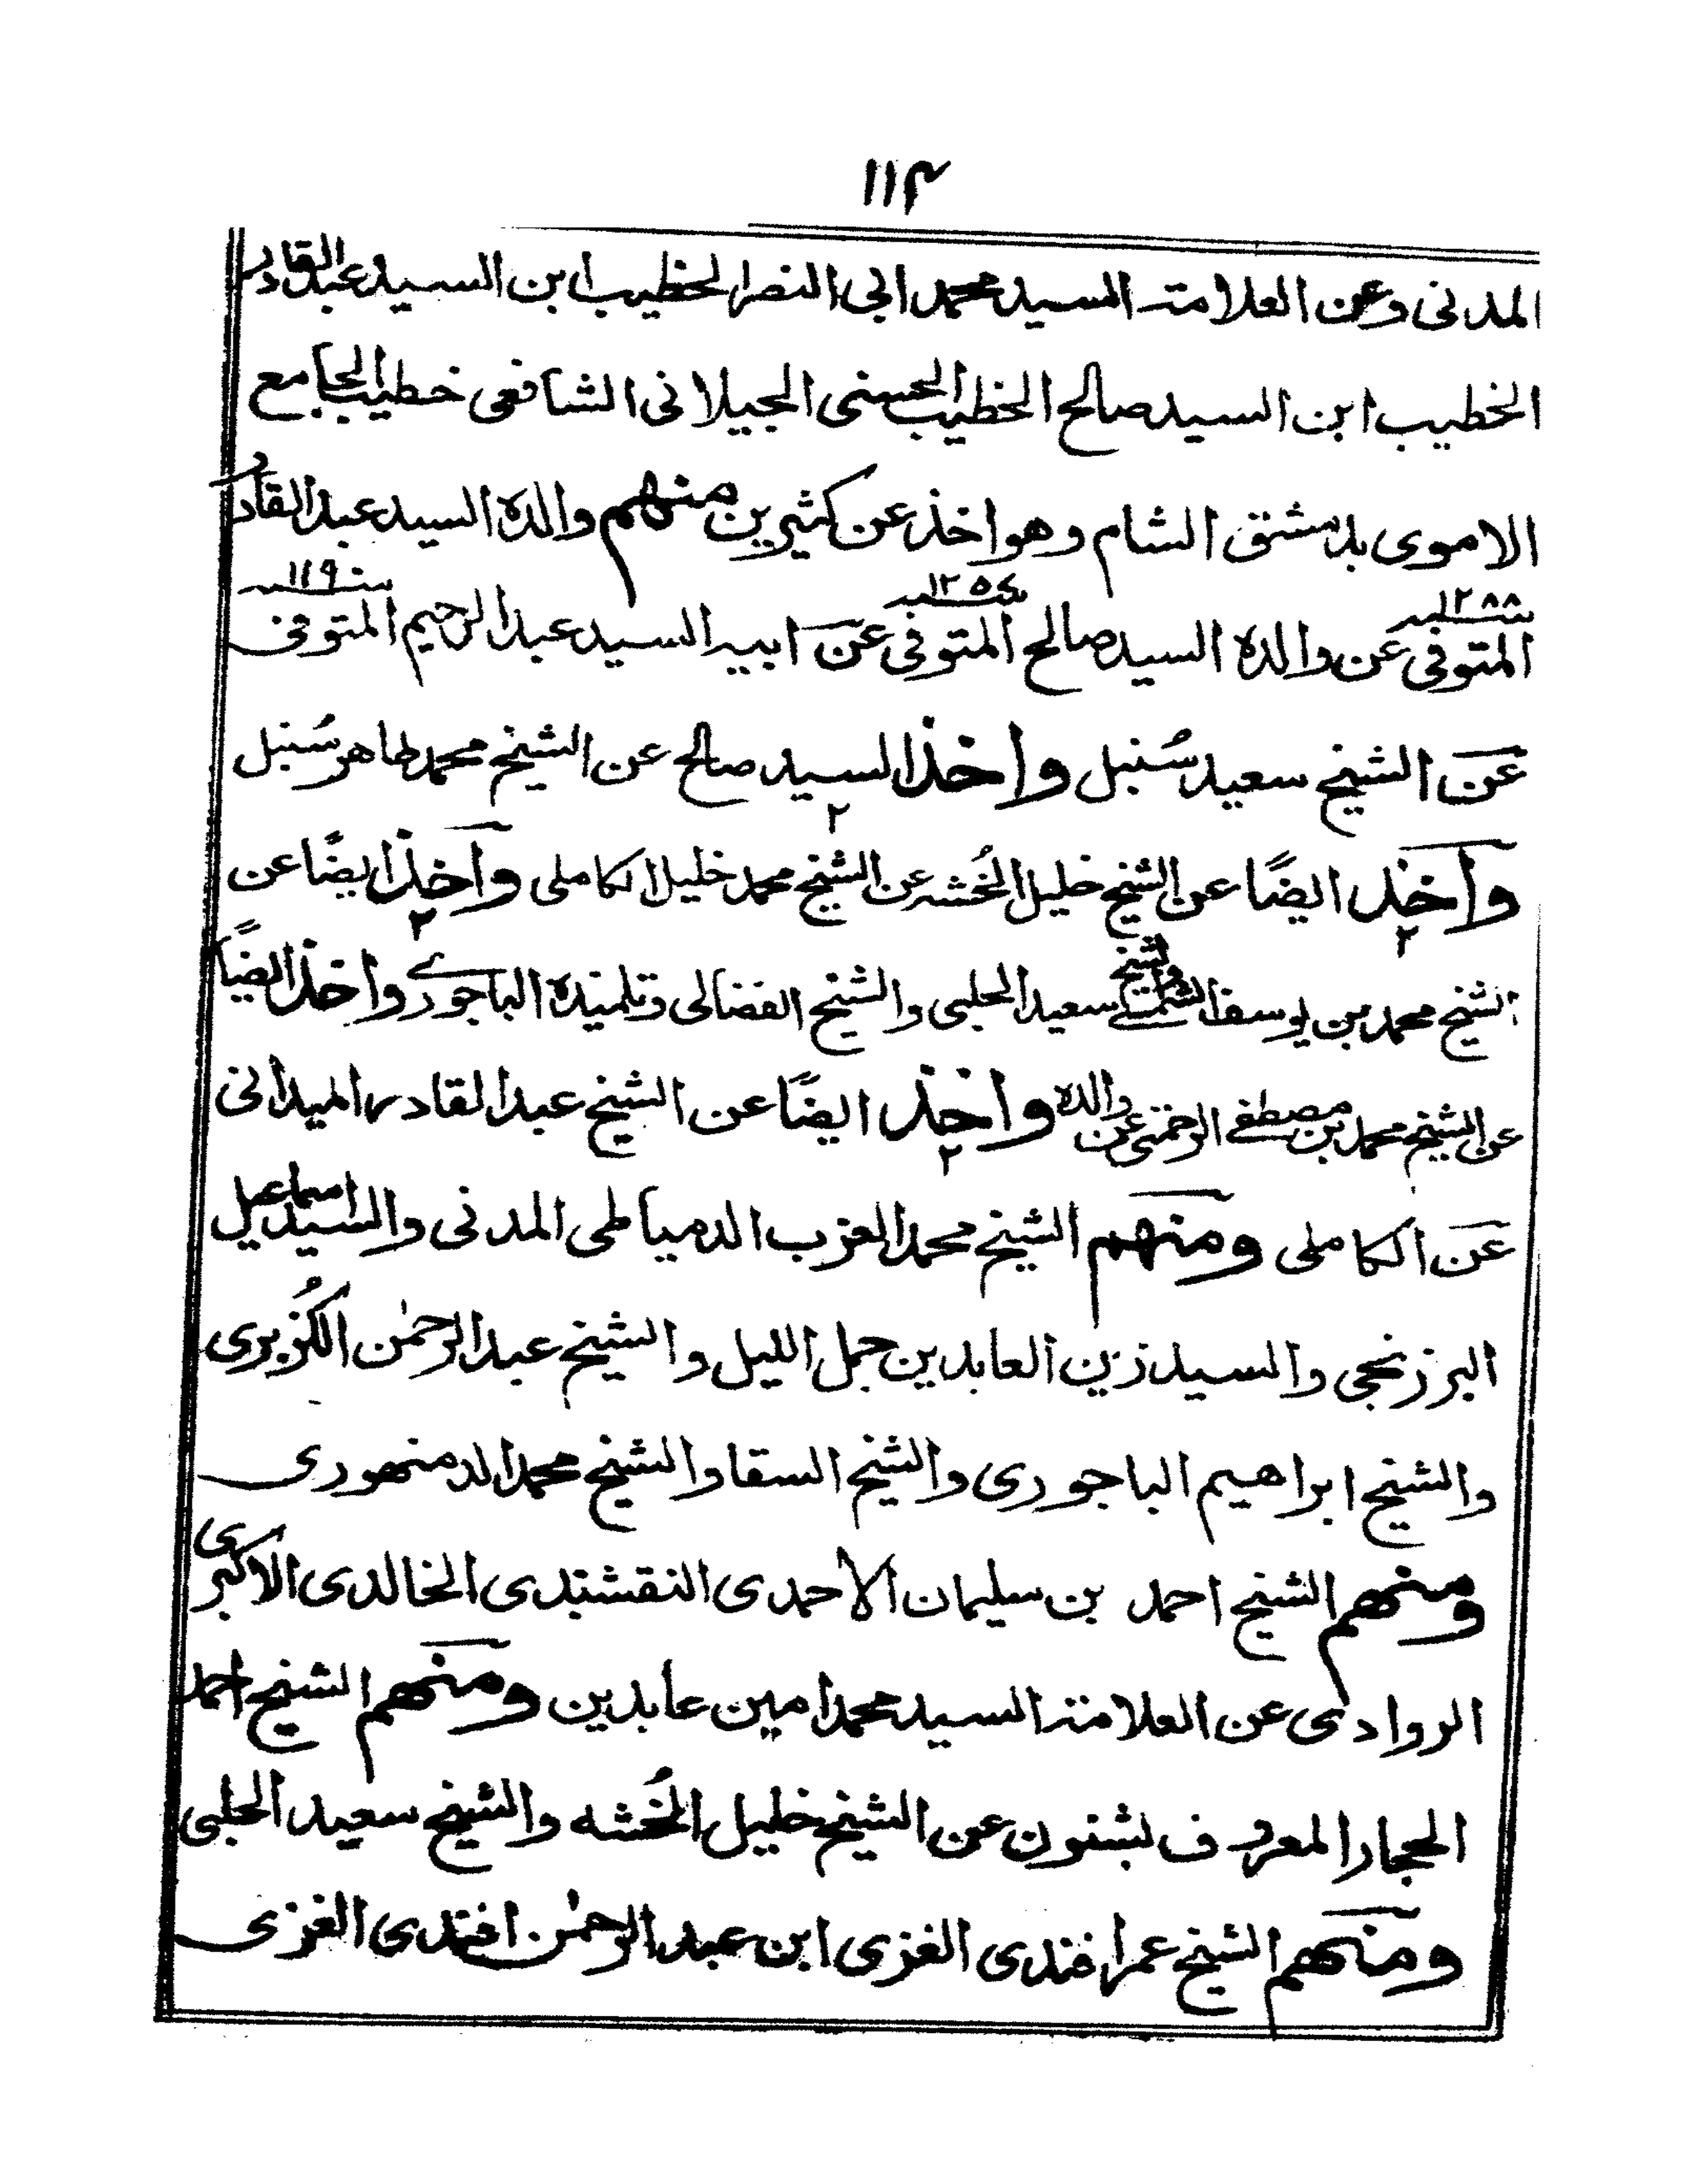 ١١٤
المدنى وعن العلامة السيد محمد ابى النصر الخطيب ابن السيد عبد القادر
الخطيب ابن السيد صالح الخطيب الحسنى الجيلانى الشافعى خطيب الجامع
الاموى بدمشق الشام وهو اخذ عن كثيرين منهم والده السيد عبد القادر
المتوفى سنة ١٢٨٨ عن والده السيد صالح المتوفى سنة ١٢٥٤ عن ابيه السيد عبد الرحيم المتوفى سنة ١١٩
عن الشيخ سعيد سُنبل واخذ السيد صالح عن الشيخ محمد طاهر سُنبل
واخذ ٢ ايضًا عن الشيخ خليل الخُشه عن الشيخ محمد خليل الكاملى واخذ ٢ ايضًا عن
الشيخ محمد بن يوسف والشيخ سعيد الحلبى والشيخ الفضالى وتلميذه الباجورى واخذ ٢ ايضًا
عن الشيخ محمد بن مصطفى الرحمتى عن والده واخذ ٢ ايضًا عن الشيخ عبد القادر الميدانى
عن الكاملى ومنهم الشيخ محمد العزب الدمياطى المدنى والسيد اسماعيل
البرزنجى والسيد زين العابدين جمل الليل والشيخ عبد الرحمٰن الكُزبرى
والشيخ ابراهيم الباجورى والشيخ السقا والشيخ محمد الدمنهورى
ومنهم الشيخ احمد بن سليمان الاحمدى النقشبندى الخالدى الاكبرى
الروادى عن العلامة السيد محمد امين عابدين ومنهم الشيخ احمد
الحجار المعروف بشنون عن الشيخ خليل الخُشه والشيخ سعيد الحلبى
ومنهم الشيخ عمر افندى الغزى ابن عبد الرحمٰن افندى الغزى